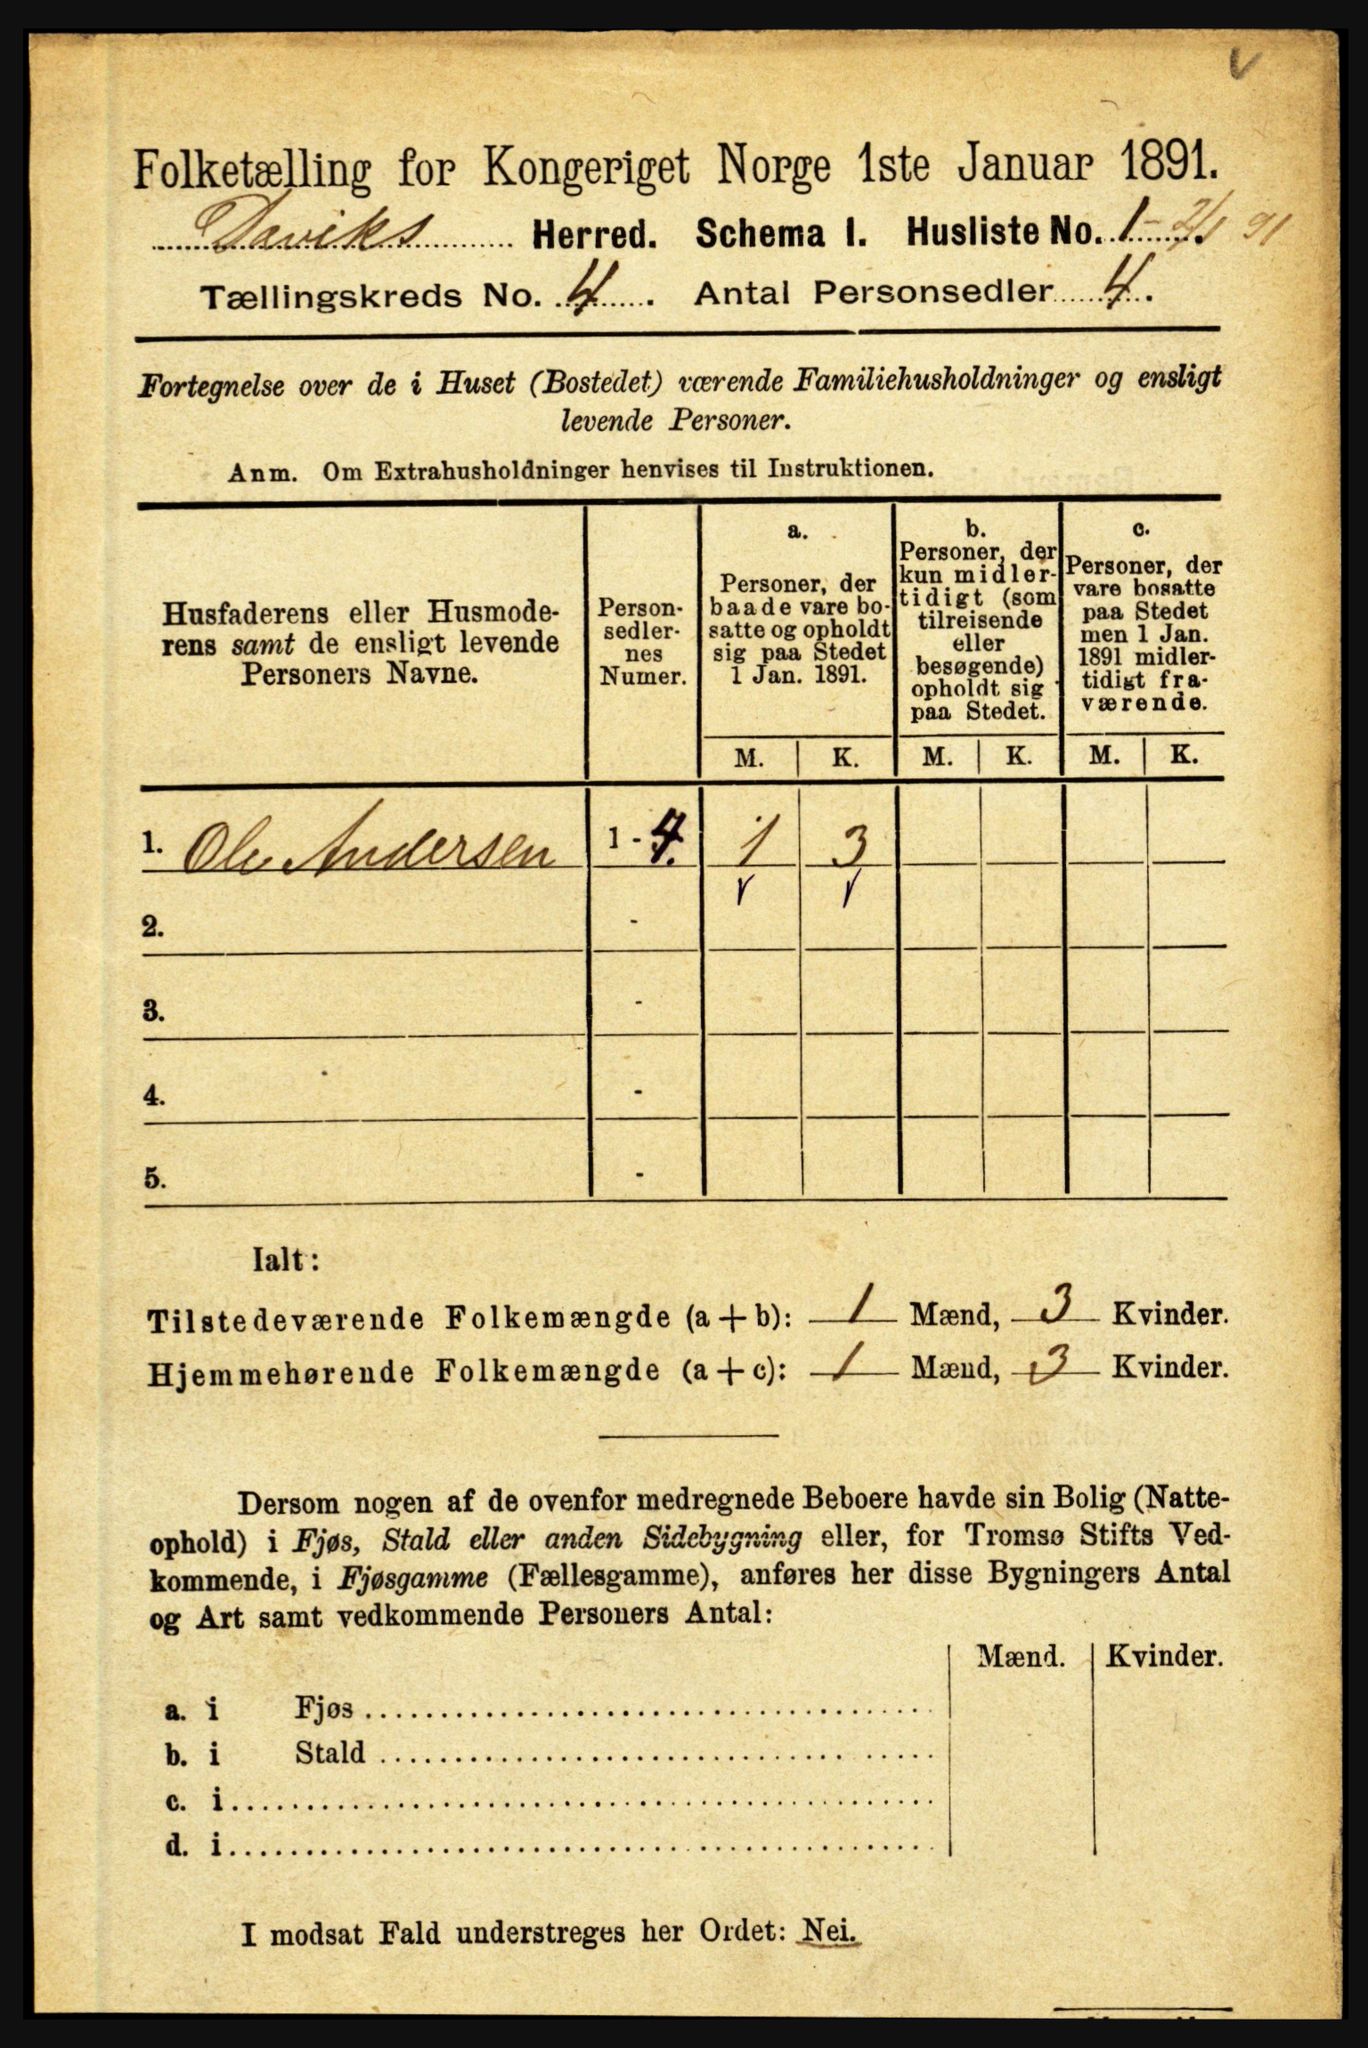 Folketælling for Kongeriget Norge 1ste Januar 1891.
Daviks Herred. Schema I. Husliste No. 1 - 2/1 91
Tællingskreds No. 4. Antal Personsedler 4.
Fortegnelse over de i Huset (Bostedet) værende Familiehusholdninger og ensligt
levende Personer.
Anm. Om Extrahusholdninger henvises til Instruktionen.
Husfaderens eller Husmode-
rens samt de ensligt levende
Personers Navne.
Person-
sedler-
nes
Numer.
a.
Personer, der
baade vare bo-
satte og opholdt
sig paa Stedet
1 Jan. 1891.
b.
Personer, der
kun midler-
tidigt (som
tilreisende
eller
besøgende)
opholdt sig
paa Stedet.
c.
Personer, der
vare bosatte
paa Stedet
men 1 Jan.
1891 midler-
tidigt fra-
værende.
M. K. M. K. M. K.
1. Ole Andersen 1 - 4. 1 3
2. -
3. -
4. -
5. -
Ialt:
Tilstedeværende Folkemængde (a+b): 1 Mænd, 3 Kvinder.
Hjemmehørende Folkemængde (a+c): 1 Mænd, 3 Kvinder.
Dersom nogen af de ovenfor medregnede Beboere havde sin Bolig (Natte-
ophold) i Fjøs, Stald eller anden Sidebygning eller, for Tromsø Stifts Ved-
kommende, i Fjøsgamme (Fællesgamme), anføres her disse Bygningers Antal
og Art samt vedkommende Personers Antal:
Mænd. Kvinder.
a. i Fjøs
b. i Stald
c. i
d. i
I modsat Fald understreges her Ordet: Nei.